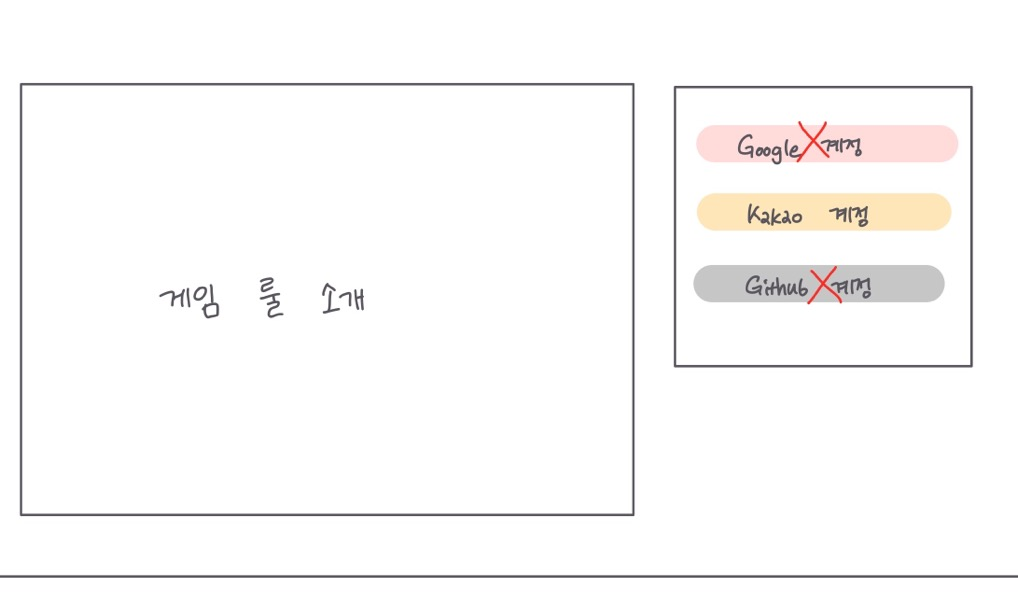 게임 룰 소개
Google 계정
Kakao 계정
Github 계정